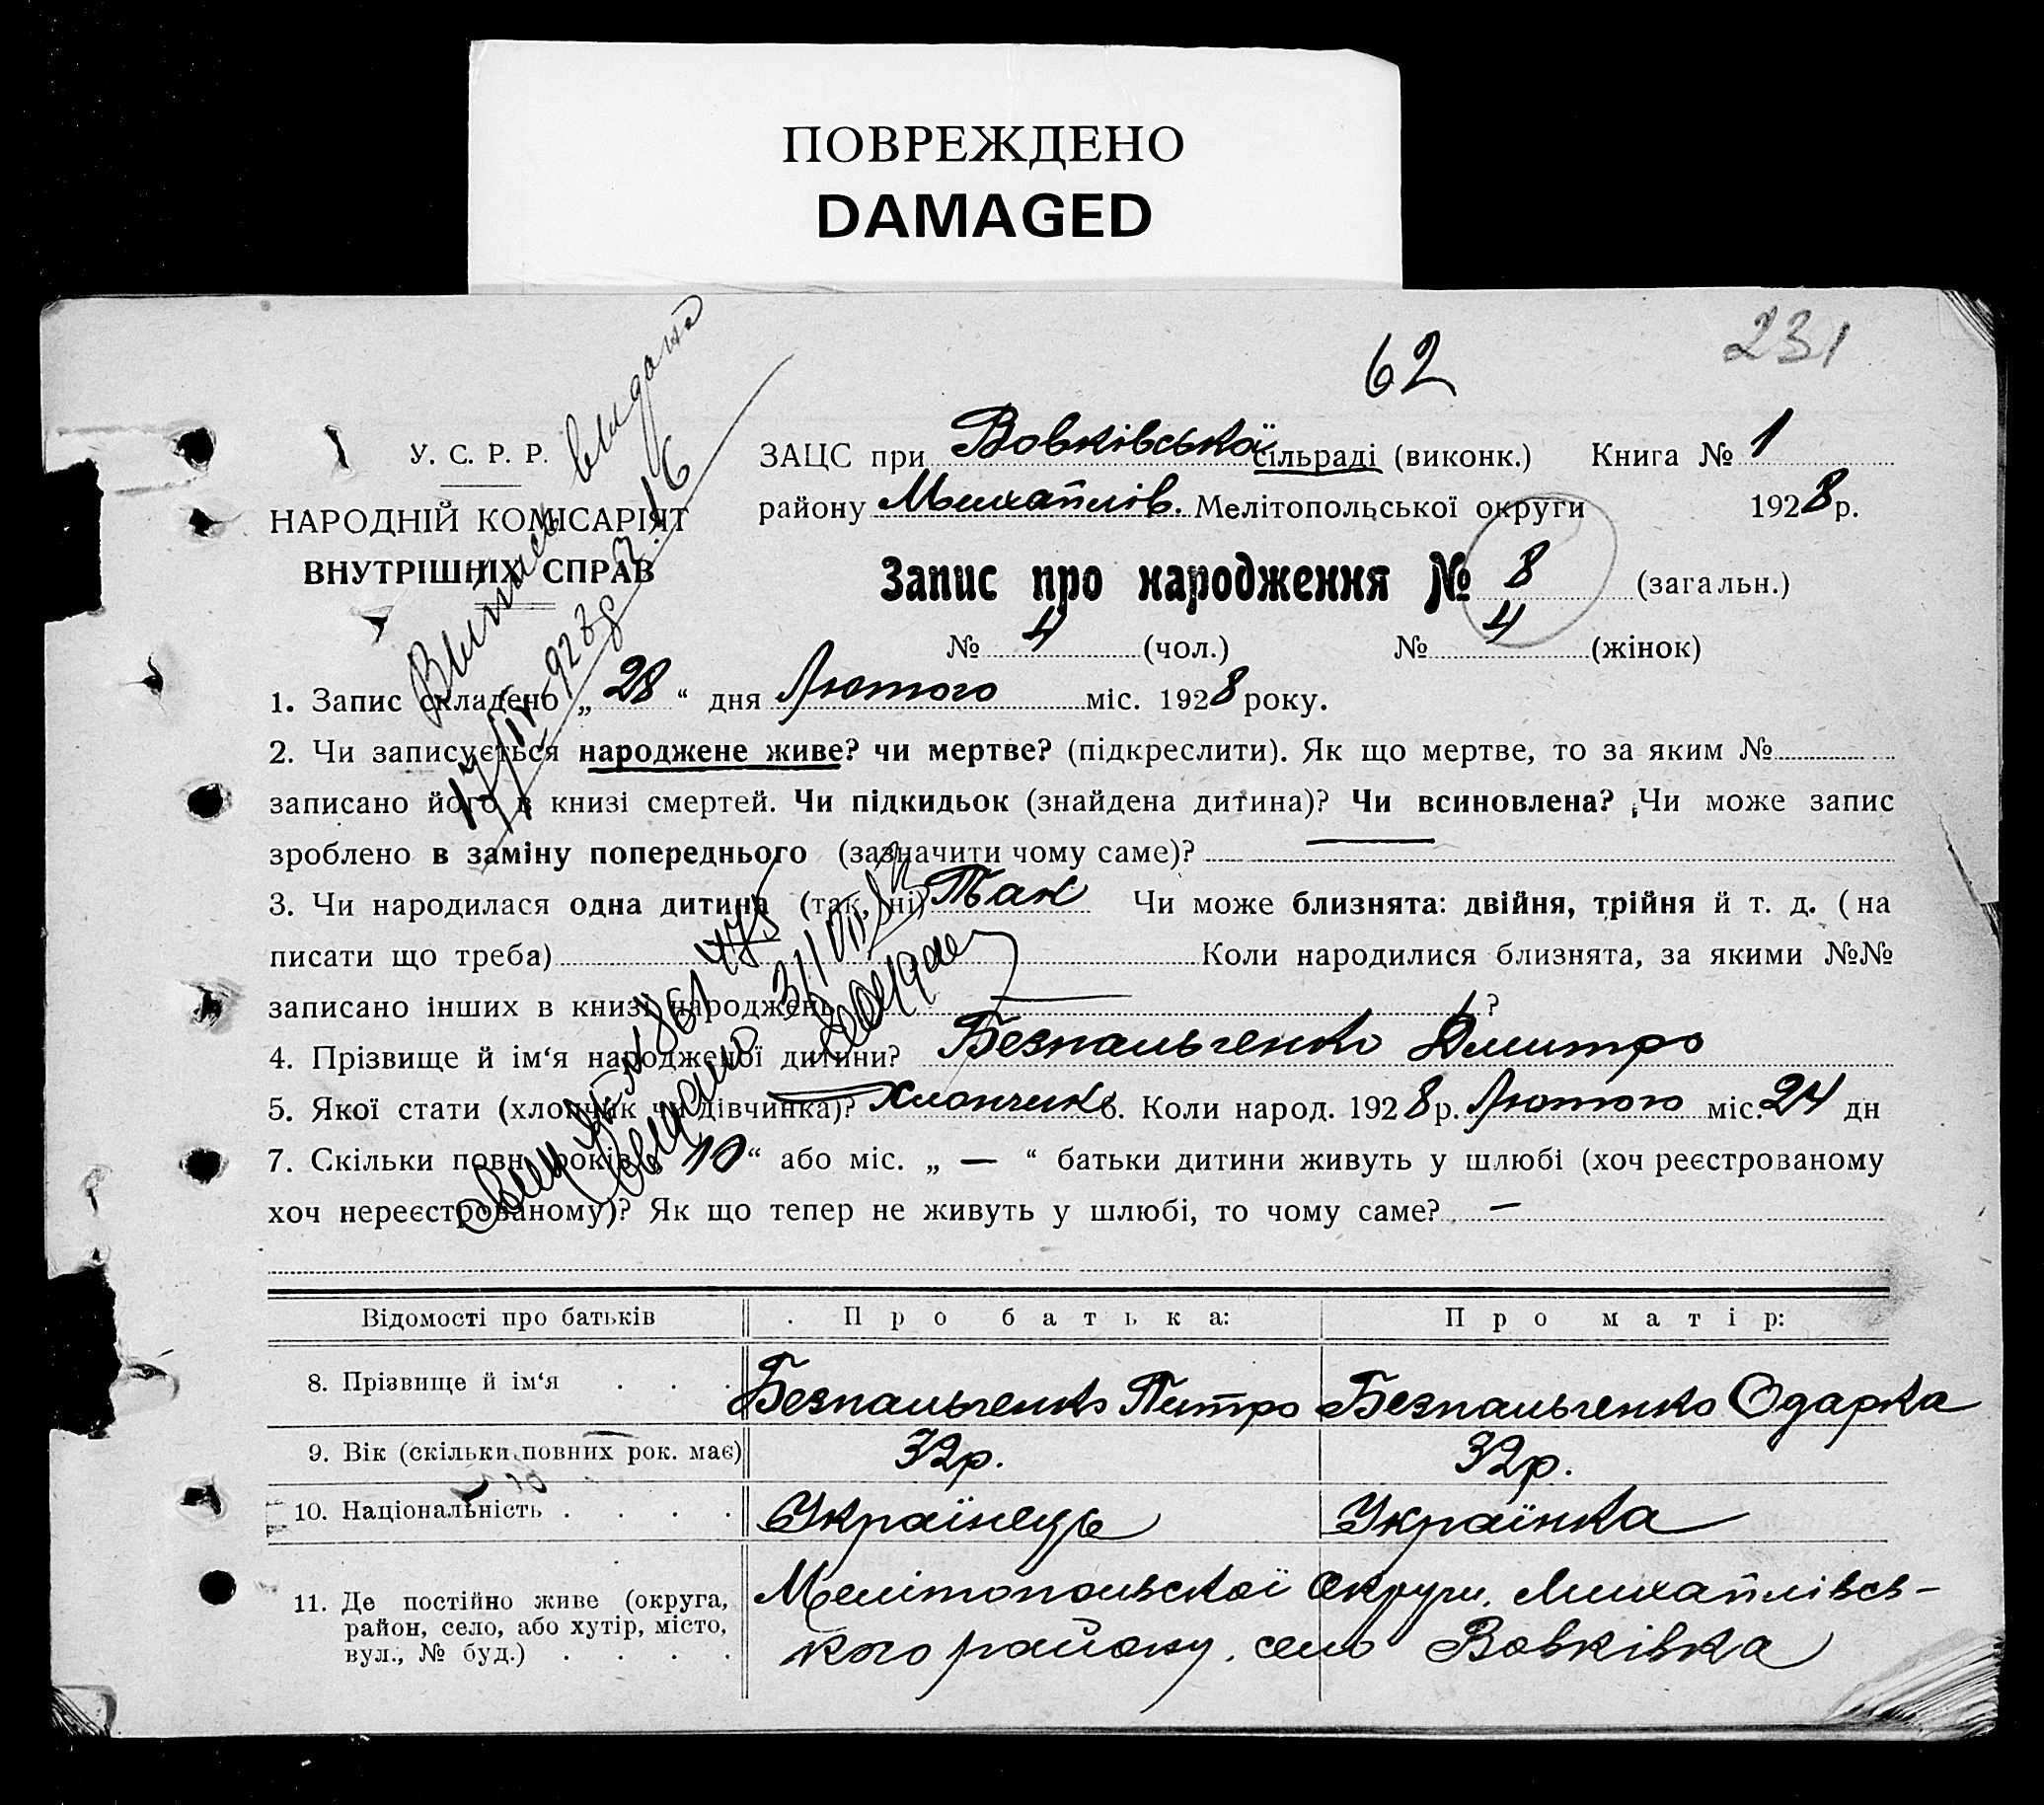 ПОВРЕЖДЕНО
DAMAGED
231
62
У. С. Р. Р.
НАРОДНІЙ КОМІСАРІЯТ
ВНУТРІШНІХ СПРАВ
ЗАЦС при Вовківської сільраді (виконк.) Книга № 1
району Михайлів. Мелітопольської округи 1928 р.
Запис про народження № 8 (загальн.)
№ 4 (чол.) № 4 (жінок)
1. Запис складено „28“ дня Лютого міс. 1928 року.
2. Чи записується народжене живе? чи мертве? (підкреслити). Як що мертве, то за яким №
записано його в книзі смертей. Чи підкидьок (знайдена дитина)? Чи всиновлена? Чи може запис
зроблено в заміну попереднього (зазначити чому саме)? —
3. Чи народилася одна дитина (так, ні) Так Чи може близнята: двійня, трійня й т. д. (на
писати що треба) Коли народилися близнята, за якими №№
записано інших в книзі народжень — ?
4. Прізвище й ім‘я народженої дитини? Безпальченко Дмитро
5. Якої стати (хлопчик чи дівчинка)? Хлопчик 6. Коли народ. 1928 р. Лютого міс. 24 дн
7. Скільки повн. років „10“ або міс. „ — “ батьки дитини живуть у шлюбі (хоч реєстрованому
хоч нереєстрованому)? Як що тепер не живуть у шлюбі, то чому саме? —
Выпись выдана
Відомості про батьків Про батька: Про матір:
8. Прізвище й ім‘я . . . Безпальченко Питро Безпальченко Одарка
9. Вік (скільки повних рок. має) 32 р. 32 р.
10. Національність . . . . Українець Українка
11. Де постійно живе (округа, район, село, або хутір, місто, вул., № буд.) . . . .
Мелітопольскої Округи, Михайлівсь-
кого району, село Вовківка